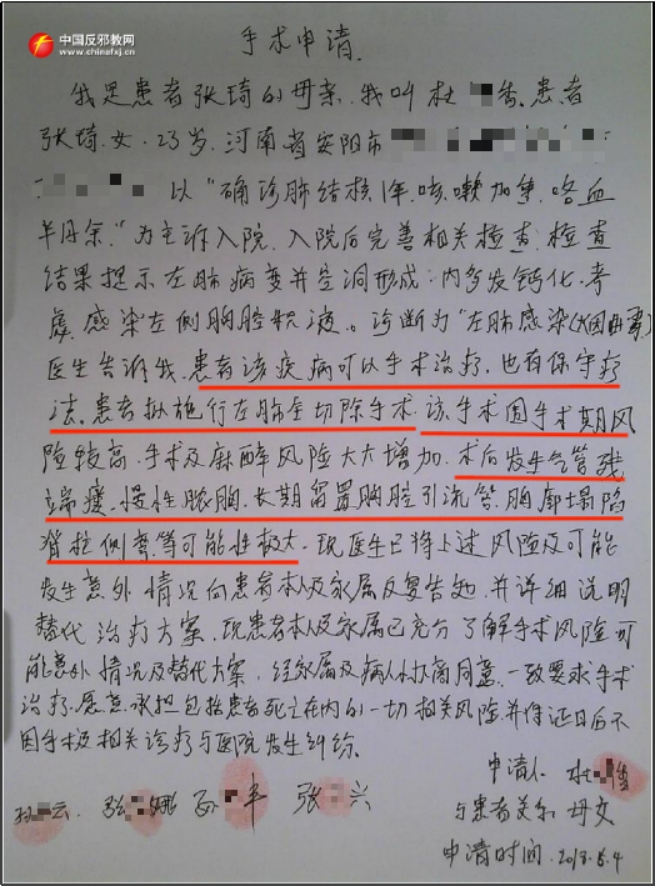 中国反邪教网
www.chinafxj.cn
手术申请
我是患者张琦的母亲,我叫杜 香,患者
张琦,女,23岁,河南省安阳市
以“确诊肺结核1年,咳嗽加重,咯血
半月余,”为主诉入院,入院后完善相关检查,检查
结果提示左肺病变并空洞形成:内多发钙化,考
虑感染左侧胸腔积液。诊断为“左肺感染
医生告诉我,患者该疾病可以手术治疗,也有保守疗
法,患者拟施行左肺全切除手术,该手术围手术期风
险较高,手术及麻醉风险大大增加,术后发生气管残
端瘘,慢性脓胸,长期留置胸腔引流管,胸廓塌陷
脊柱侧弯等可能性极大,现医生已将上述风险及可能
发生意外情况向患者本人及家属反复告知,并详细说明
替代治疗方案,现患者本人及家属已充分了解手术风险可
能意外情况及替代方案,经家属及病人协商同意,一致要求手术
治疗,愿意承担包括患者死亡在内的一切相关风险,并保证日后不
因手术及相关诊疗与医院发生纠纷。
申请人 杜 香
孙 云 张 娜 孙 丰 张 兴
与患者关系 母女
申请时间.2013.5.4